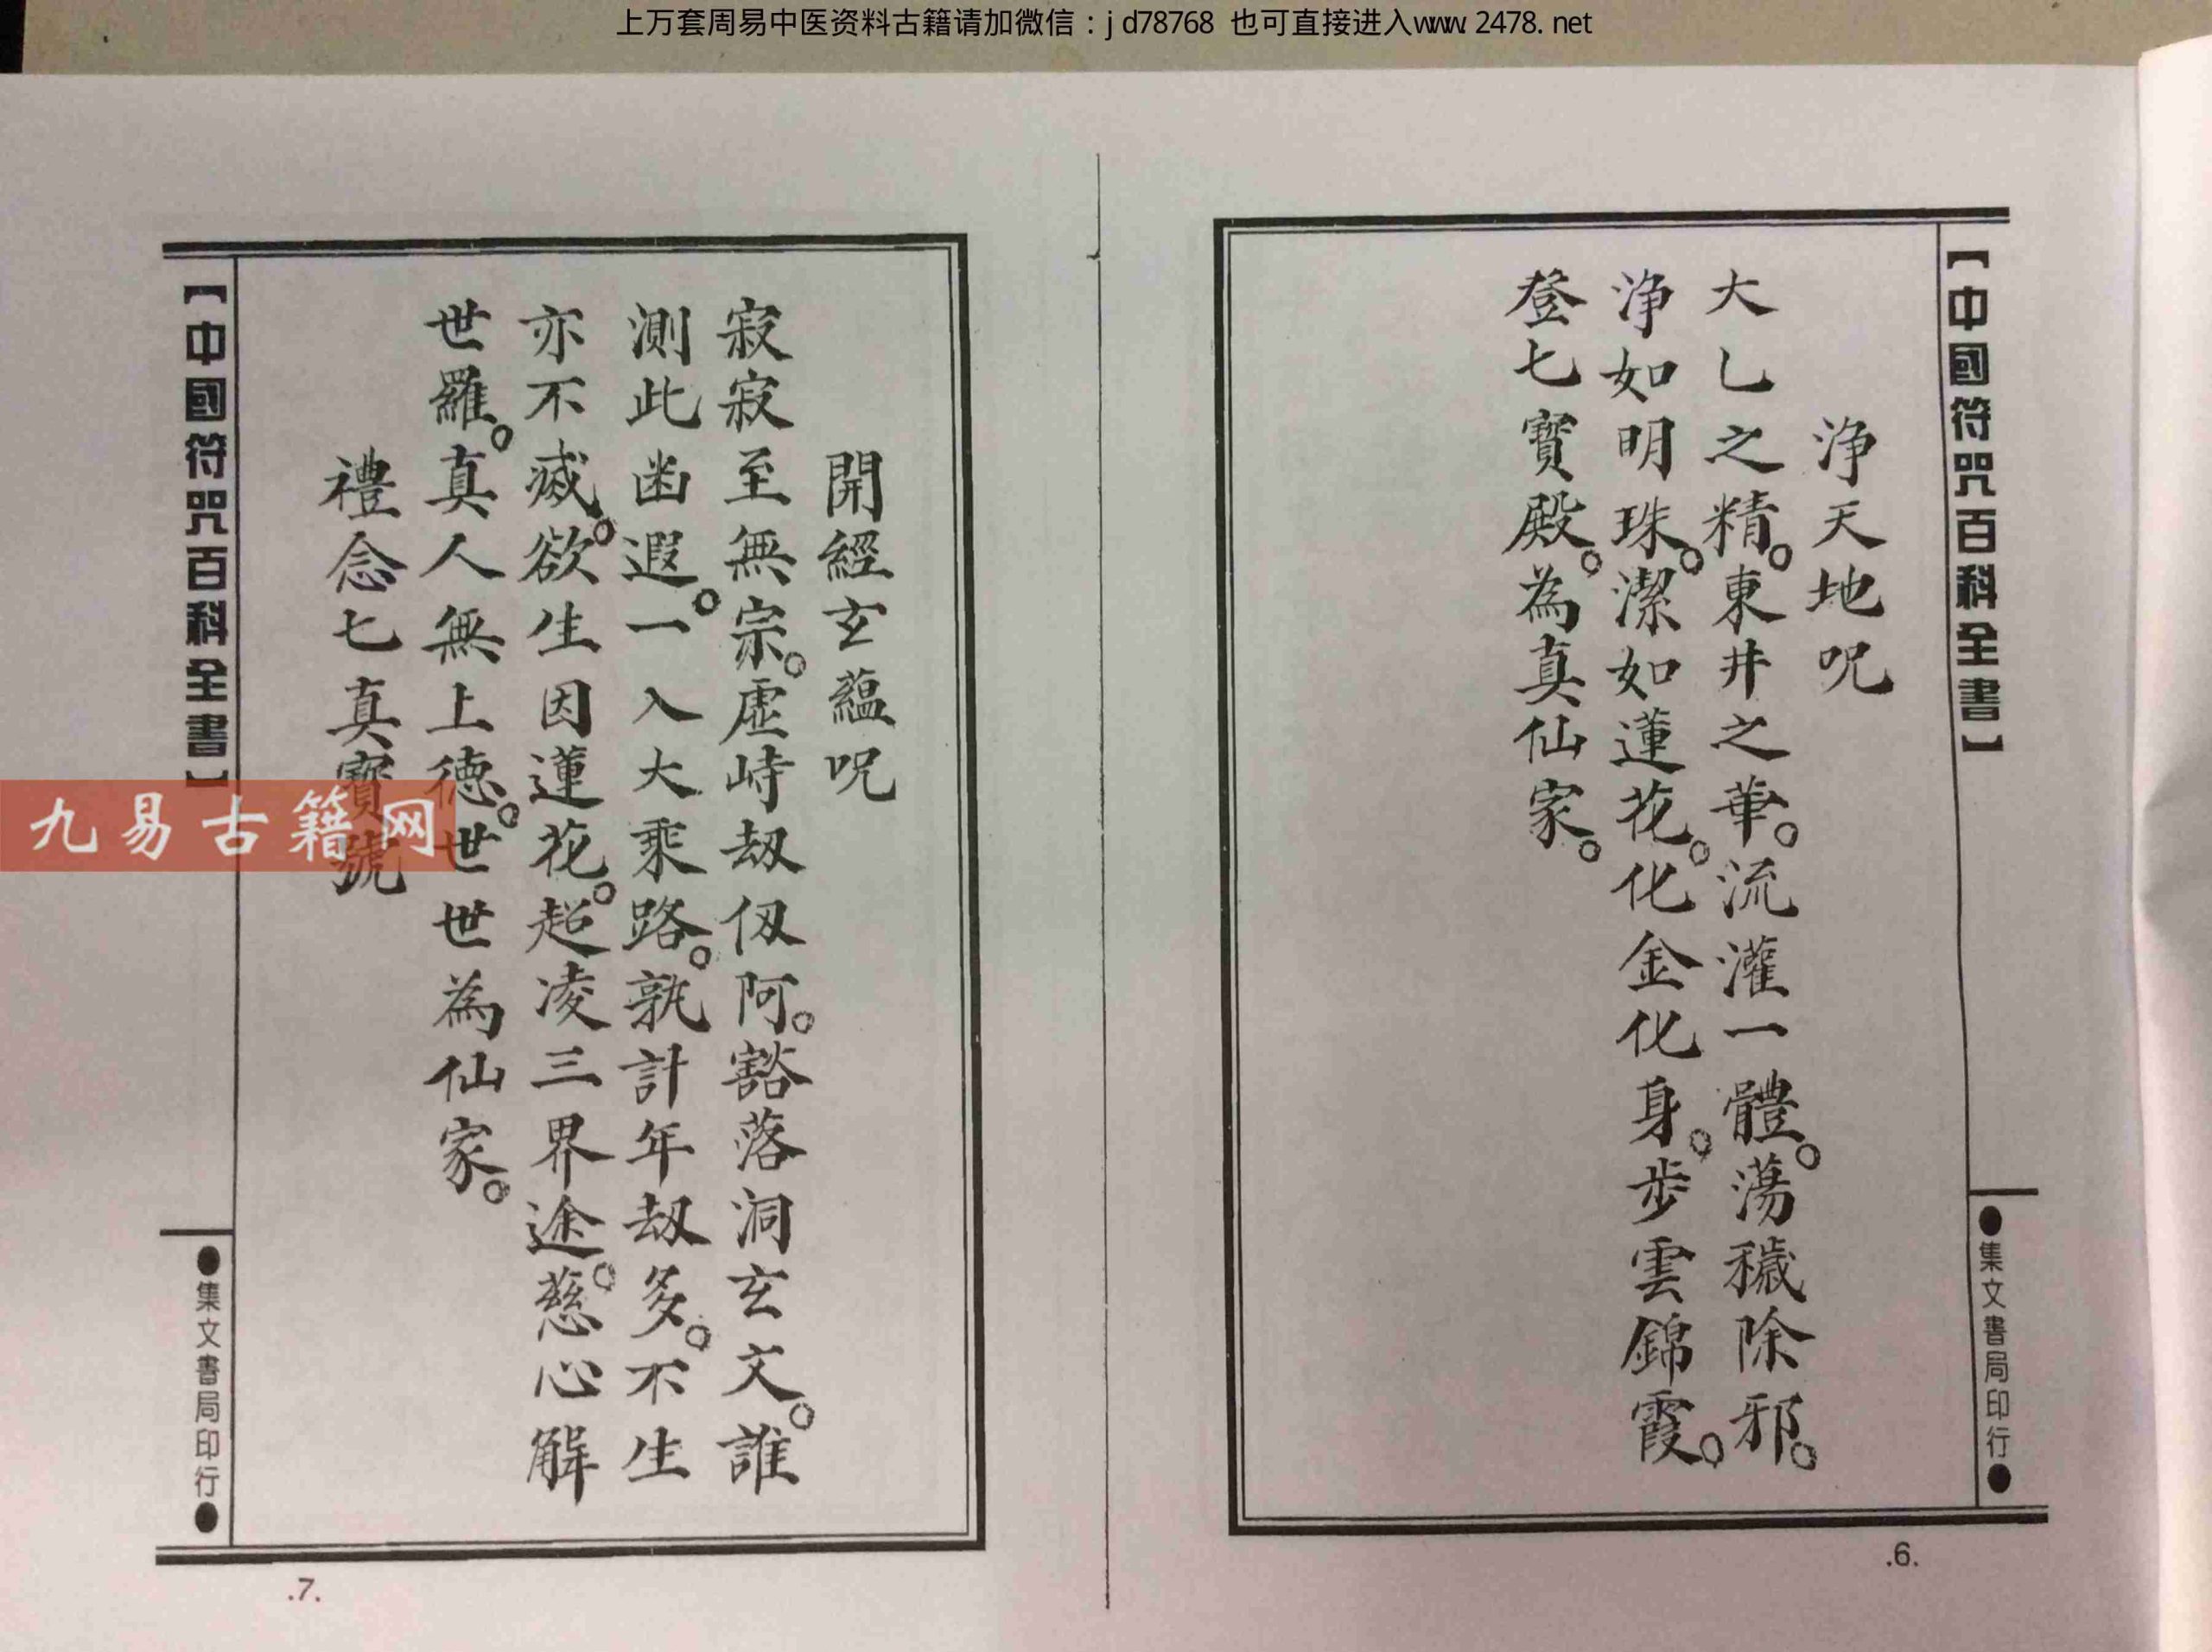 上万套周易中医资料古籍请加微信：jd78768 也可直接进入www.2478.net
【中國符咒百科全書】
●集文書局印行●
淨天地呪
大乚之精。東井之華。流灌一體。蕩穢除邪。
淨如明珠。潔如蓮花。化金化身。步雲錦霞。
登七寶殿。為真仙家。
.6.
開經玄蘊呪
寂寂至無宗。虛峙劫仞阿。豁落洞玄文。誰
測此幽遐。一入大乘路。孰計年劫多。不生
亦不滅。欲生因蓮花。超凌三界途。慈心解
世羅。真人無上德。世世為仙家。
禮念七真寶號
【中國符咒百科全書】
●集文書局印行●
.7.
九易古籍网